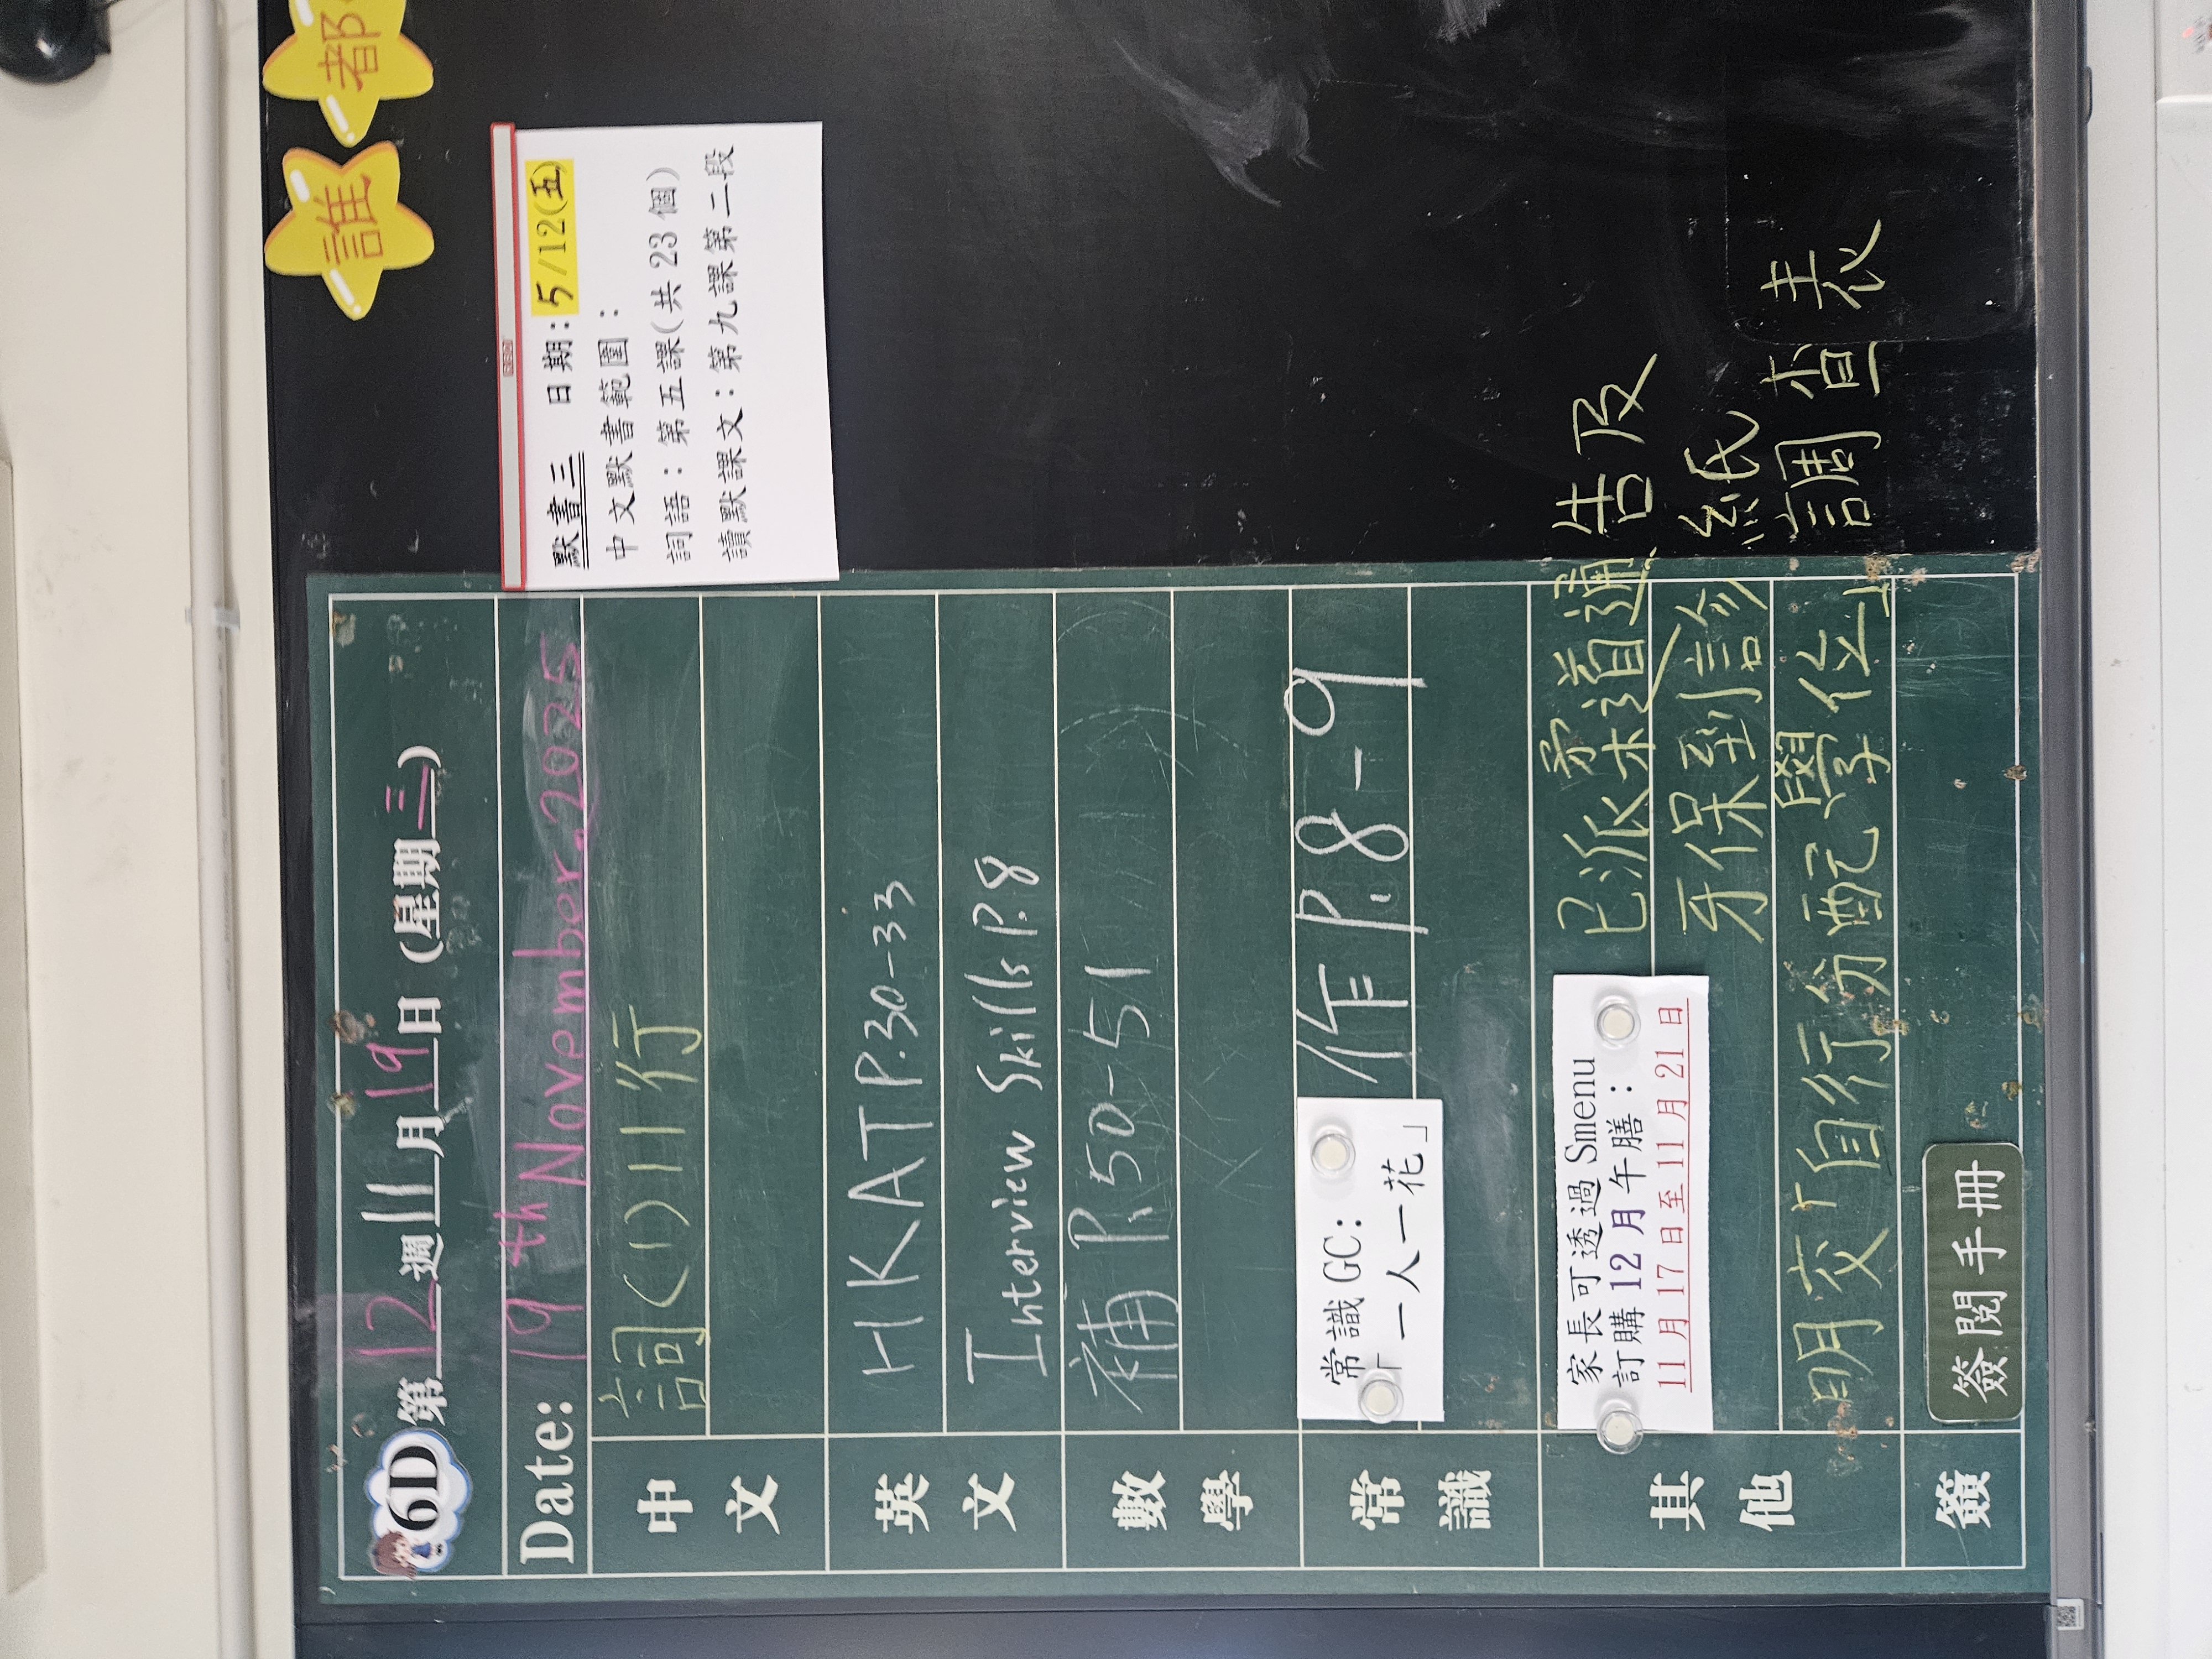 誰 都
6D 第 12 週 11 月 19 日 (星期 三)
Date: 19th November, 2025
中文
詞(1)11行
英文
HKAT P.30-33
Interview Skills P.8
數學
補 P.50-51
常識
常識 GC:
「一人一花」
作 P.8-9
其他
家長可透過 Smenu
訂購 12 月午膳:
11 月 17 日至 11 月 21 日
已派柔道通告及
牙保到診紙
明交「自行分配學位」調查表
簽
簽閱手冊
默書三 日期: 5/12(五)
中文默書範圍:
詞語:第五課(共 23 個)
讀默課文:第九課第二段